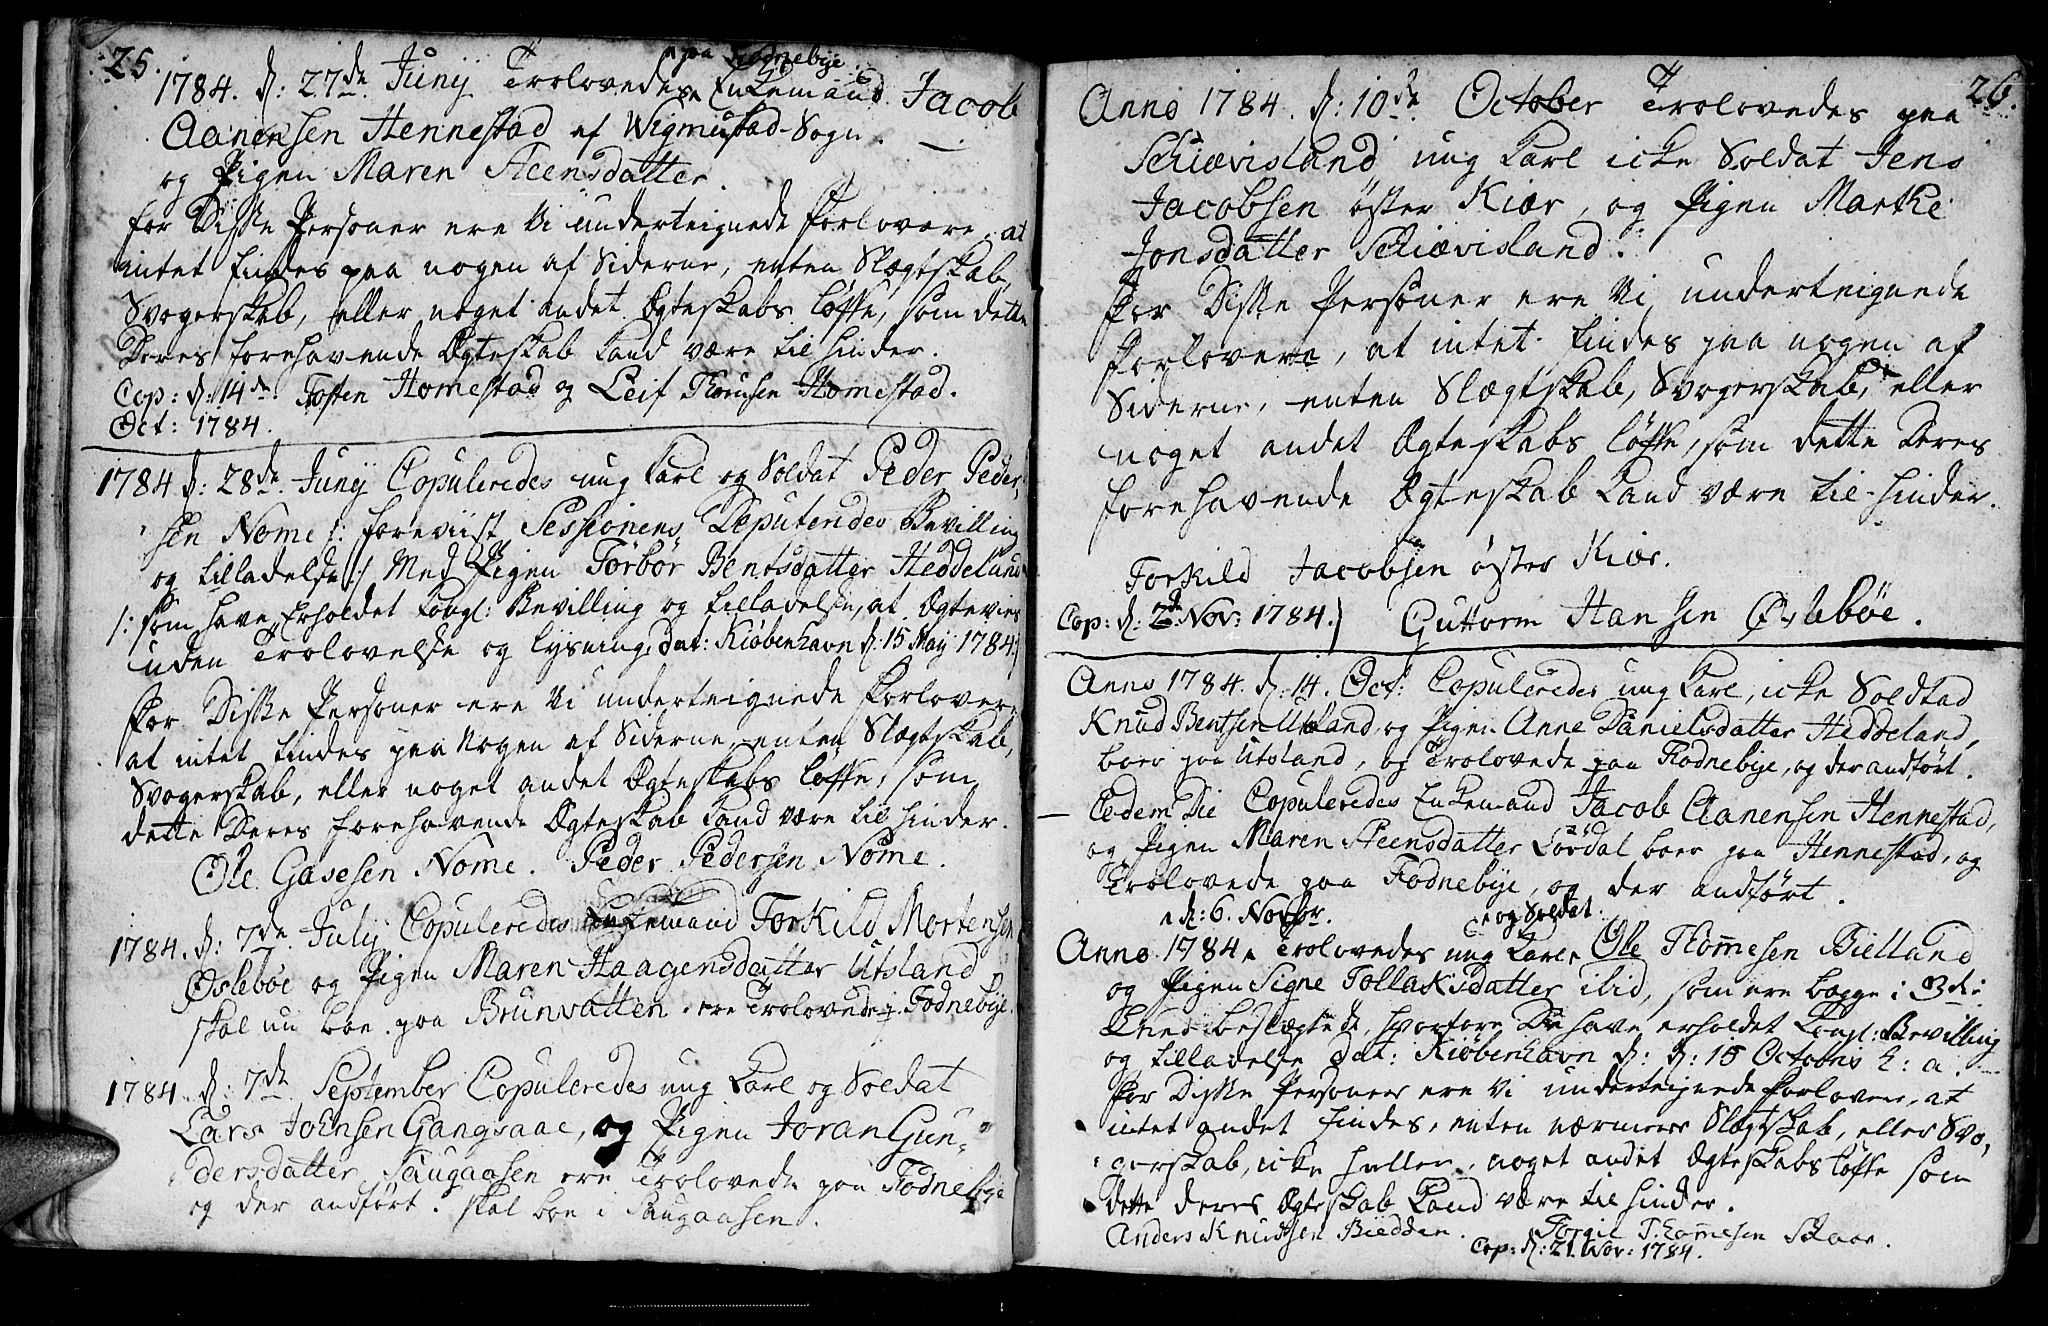 25.
paa Fodnebye.
1784. d: 27de Junij Trolovedes Enkemand Jacob
Aanensen Hennestad af Wigmustad-Sogn.
og Pigen Maren Steensdatter.
for Disse Personer ere Vi underteignede Forlovere, at
intet findes paa nogen af Siderne, enten Slægtskab,
Svogerskab, eller noget andet Ægteskabs løfte, som dette
Deres forehavende Ægteskab kand være til hinder.
Cop: d: 14de Tosten Homestad og Leif Thorusen Homestad.
Oct: 1784.
1784 d: 28de Junij Copuleredes ung Karl og Soldat Peder Peder-
sen Nome /: foreviist Sessionens Deputeredes Bevilling
og tilladelse :/ Med Pigen Torbor Bentsdatter Heddeland
/: som have Erholdet Kongl: Bevilling og tilladelse, at Ægtevies
uden Trolovelse og lysning, dat: Kiøbenhavn d: 15 May 1784 :/
For Disse Personer ere Vi underteignede Forlovere
at intet findes paa Nogen af Siderne, enten Slægtskab,
Svogerskab, eller noget andet Ægteskabs løfte, som
dette Deres forehavende Ægteskab kand være til hinder.
Ole Gasesen Nome. Peder Pedersen Nome.
1784. d: 7de Julij Copuleredes Enkemand Torkild Mortensen
Øslebøe og Pigen Maren Haagensdatter Utsland
skal nu boe paa Brunvatten. ere Trolovede i Fodnebye.
1784. d: 7de September Copuleredes ung Karl og Soldat
Lars Johnsen Gangsaae, og Pigen Joran Gun-
dersdatter Saugaasen ere Trolovede paa Fodnebye
og der andført. skal boe i Saugaasen.
26.
Anno 1784. d: 10de October Trolovedes paa
Schiævisland ung Karl icke Soldat Jens
Jacobsen øster Kiær, og Pigen Marthe
Jonsdatter Schiævisland.
For Disse Personer ere Vi underteignede
Forlovere, at intet findes paa nogen af
Siderne, enten Slægtskab, Svogerskab, eller
noget andet Ægteskabs løfte, som dette Deres
forehavende Ægteskab kand være til hinder.
Torkild Jacobsen øster Kiær.
Cop: d: 2de Nov: 1784.) Guttorm Hansen Øslebøe.
Anno 1784. d: 14. Oct: Copuleredes ung Karl, icke Soldtad
Knud Bentsen Utsland, og Pigen Anne Danielsdatter Heddeland,
boer paa Utsland, og Trolovede paa Fodnebye, og der andført.
Eedem Die Copuleredes Enkemand Jacob Aanensen Hennestad,
og Pigen Maren Steensdatter Lørdal boer paa Hennestad, og
Trolovede paa Fodnebye, og der andført.
d: 6. Novbr. og Soldat.
Anno 1784 Trolovedes ung Karl Ole Thomesen Bielland
og Pigen Signe Tollaksdatter ibid, som ere begge i 3die
Knee beslægtede, hvorfore De have erholdet Kongl: Bevilling
og tilladelse dat: Kiøbenhavn d: d: 15 Octobris h: a:
For Disse Personer ere Vi underteignede Forlovere, at
intet andet findes, enten nærmere Slægtskab, eller Svo-
gerskab, icke heller noget andet Ægteskabs løfte som
dette deres Ægteskab kand være til hinder.
Anders Knudsen Biedden. Torgie Thomesen Skaar.
Cop: d: 21. Nov: 1784.